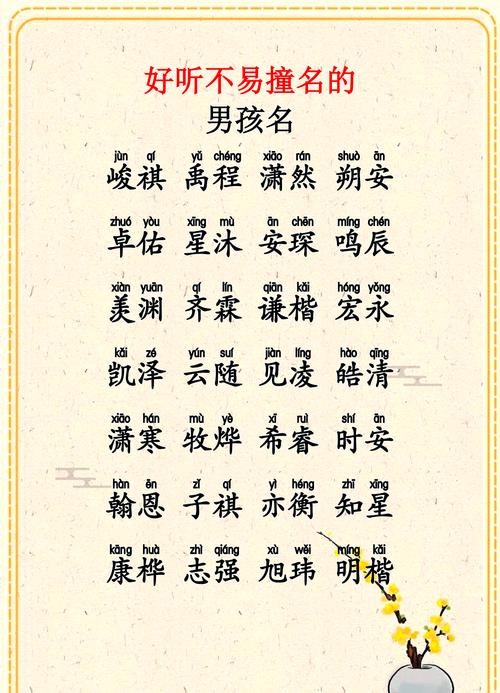 好听不易撞名的
男孩名
jùn qí yǔ chéng xiāo rán shuò ān
峻祺 禹程 潇然 朔安
zhuó yòu xīng mù ān chēn míng chén
卓佑 星沐 安琛 鸣辰
xiàn yuān qí lín qiān kǎi hóng yǒng
羡渊 齐霖 谦楷 宏永
kǎi zé yún suí jiàn líng hào qīng
凯泽 云随 见凌 皓清
xiāo hán mù yè xī ruì shí ān
潇寒 牧烨 希睿 时安
hàn ēn zǐ qí yì héng zhī xīng
翰恩 子祺 亦衡 知星
kāng huà zhì qiáng xù wěi míng kǎi
康桦 志强 旭玮 明楷